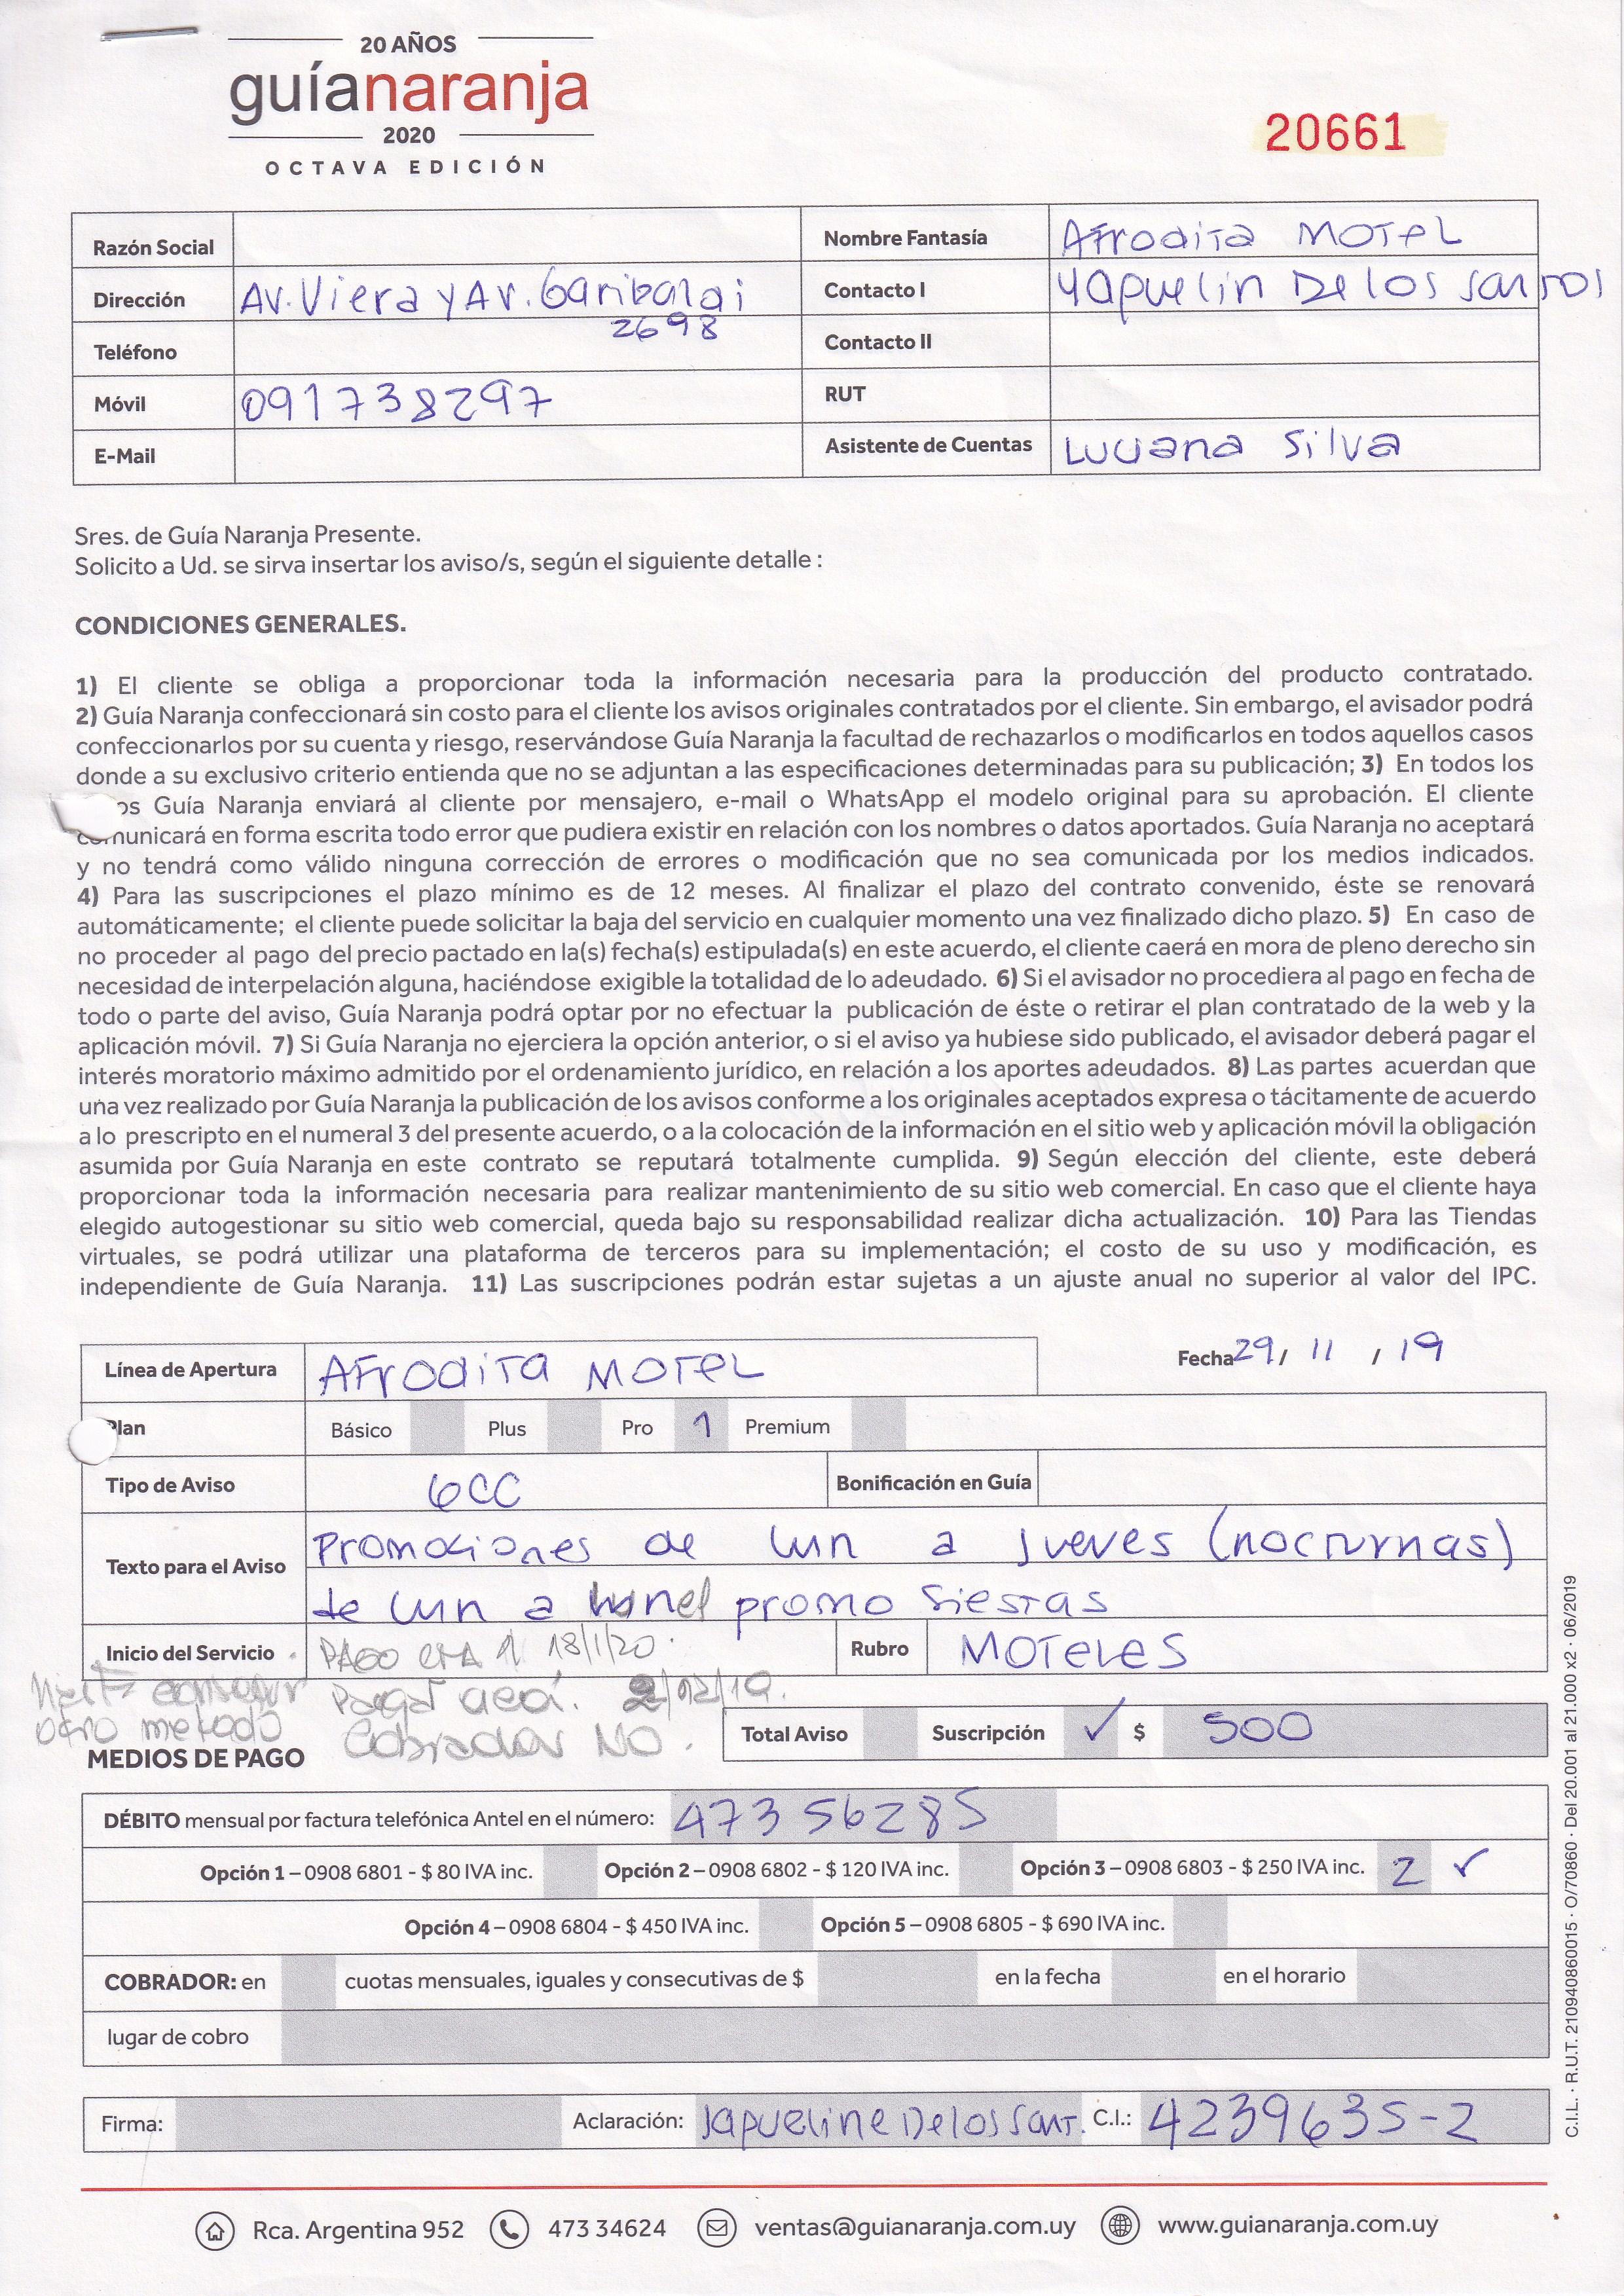 20 AÑOS
guíanaranja
2020
OCTAVA EDICIÓN
20661
Razón Social
Nombre Fantasía Afrodita MOTEL
Dirección Av. Viera y Av. Garibaldi
2698
Contacto I Yaquelin De los Santos
Teléfono
Contacto II
Móvil 091738297
RUT
E-Mail
Asistente de Cuentas Luciana Silva
Sres. de Guía Naranja Presente.
Solicito a Ud. se sirva insertar los aviso/s, según el siguiente detalle :
CONDICIONES GENERALES.
1) El cliente se obliga a proporcionar toda la información necesaria para la producción del producto contratado.
2) Guía Naranja confeccionará sin costo para el cliente los avisos originales contratados por el cliente. Sin embargo, el avisador podrá
confeccionarlos por su cuenta y riesgo, reservándose Guía Naranja la facultad de rechazarlos o modificarlos en todos aquellos casos
donde a su exclusivo criterio entienda que no se adjuntan a las especificaciones determinadas para su publicación; 3) En todos los
os Guía Naranja enviará al cliente por mensajero, e-mail o WhatsApp el modelo original para su aprobación. El cliente
comunicará en forma escrita todo error que pudiera existir en relación con los nombres o datos aportados. Guía Naranja no aceptará
y no tendrá como válido ninguna corrección de errores o modificación que no sea comunicada por los medios indicados.
4) Para las suscripciones el plazo mínimo es de 12 meses. Al finalizar el plazo del contrato convenido, éste se renovará
automáticamente; el cliente puede solicitar la baja del servicio en cualquier momento una vez finalizado dicho plazo. 5) En caso de
no proceder al pago del precio pactado en la(s) fecha(s) estipulada(s) en este acuerdo, el cliente caerá en mora de pleno derecho sin
necesidad de interpelación alguna, haciéndose exigible la totalidad de lo adeudado. 6) Si el avisador no procediera al pago en fecha de
todo o parte del aviso, Guía Naranja podrá optar por no efectuar la publicación de éste o retirar el plan contratado de la web y la
aplicación móvil. 7) Si Guía Naranja no ejerciera la opción anterior, o si el aviso ya hubiese sido publicado, el avisador deberá pagar el
interés moratorio máximo admitido por el ordenamiento jurídico, en relación a los aportes adeudados. 8) Las partes acuerdan que
una vez realizado por Guía Naranja la publicación de los avisos conforme a los originales aceptados expresa o tácitamente de acuerdo
a lo prescripto en el numeral 3 del presente acuerdo, o a la colocación de la información en el sitio web y aplicación móvil la obligación
asumida por Guía Naranja en este contrato se reputará totalmente cumplida. 9) Según elección del cliente, este deberá
proporcionar toda la información necesaria para realizar mantenimiento de su sitio web comercial. En caso que el cliente haya
elegido autogestionar su sitio web comercial, queda bajo su responsabilidad realizar dicha actualización. 10) Para las Tiendas
virtuales, se podrá utilizar una plataforma de terceros para su implementación; el costo de su uso y modificación, es
independiente de Guía Naranja. 11) Las suscripciones podrán estar sujetas a un ajuste anual no superior al valor del IPC.
Línea de Apertura AFrodita MOTEL
Fecha 29 / 11 / 19
Plan Básico Plus Pro 1 Premium
Tipo de Aviso 6CC
Bonificación en Guía
Texto para el Aviso
Promociones de lun a jueves (nocturnas)
de lun a promo siestas
Inicio del Servicio PAGO 18/1/20.
Rubro MOTELES
Pagar acá. 2/12/19.
otro metodo
Cobrador NO.
Total Aviso Suscripción ✓ $ 500
MEDIOS DE PAGO
DÉBITO mensual por factura telefónica Antel en el número: 473 56285
Opción 1 – 0908 6801 - $ 80 IVA inc. Opción 2 – 0908 6802 - $ 120 IVA inc. Opción 3 – 0908 6803 - $ 250 IVA inc. 2 ✓
Opción 4 – 0908 6804 - $ 450 IVA inc. Opción 5 – 0908 6805 - $ 690 IVA inc.
COBRADOR: en cuotas mensuales, iguales y consecutivas de $ en la fecha en el horario
lugar de cobro
Firma: Aclaración: Jaqueline De los Sant. C.I.: 4239635-2
Rca. Argentina 952 473 34624 ventas@guianaranja.com.uy www.guianaranja.com.uy
C.I.L. · R.U.T. 210940860015 · O/70860 · Del 20.001 al 21.000 x2 · 06/2019